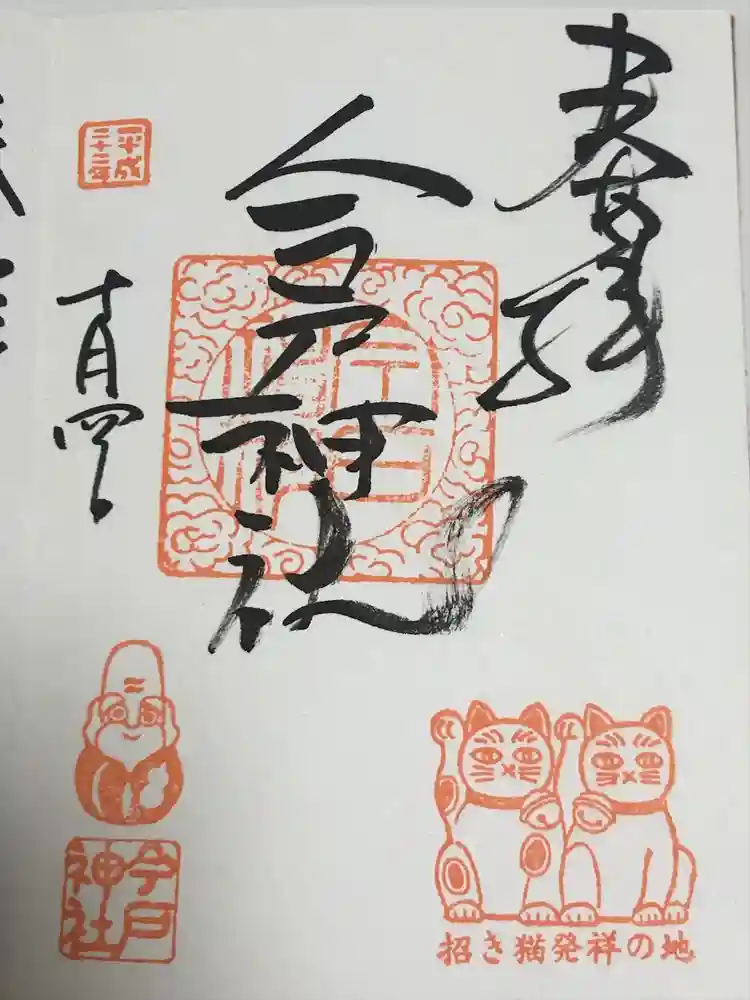 奉拝
今戸神社
平成
二十三年
十月四日
今戸
神社
招き猫発祥の地